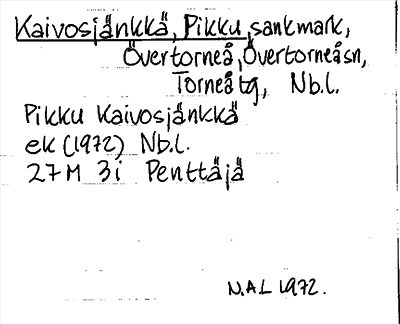 Kaivosjänkkä, Pikku, sankmark,
Övertorneå, Övertorneåsn,
Torneåtg, Nb.l.
Pikku Kaivosjänkkä
ek (1972) Nb.l.
27M 3i Penttäjä
N.A.L 1972.